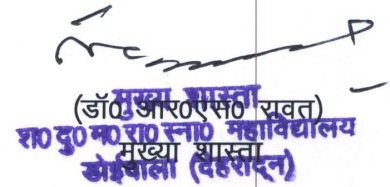 मुख्य शास्ता
(डॉ0 आर0एस0 रावत)
श0 दु0 म0 रा0 स्ना0 महाविद्यालय
मुख्या शास्ता
डोईवाला (देहरादून)